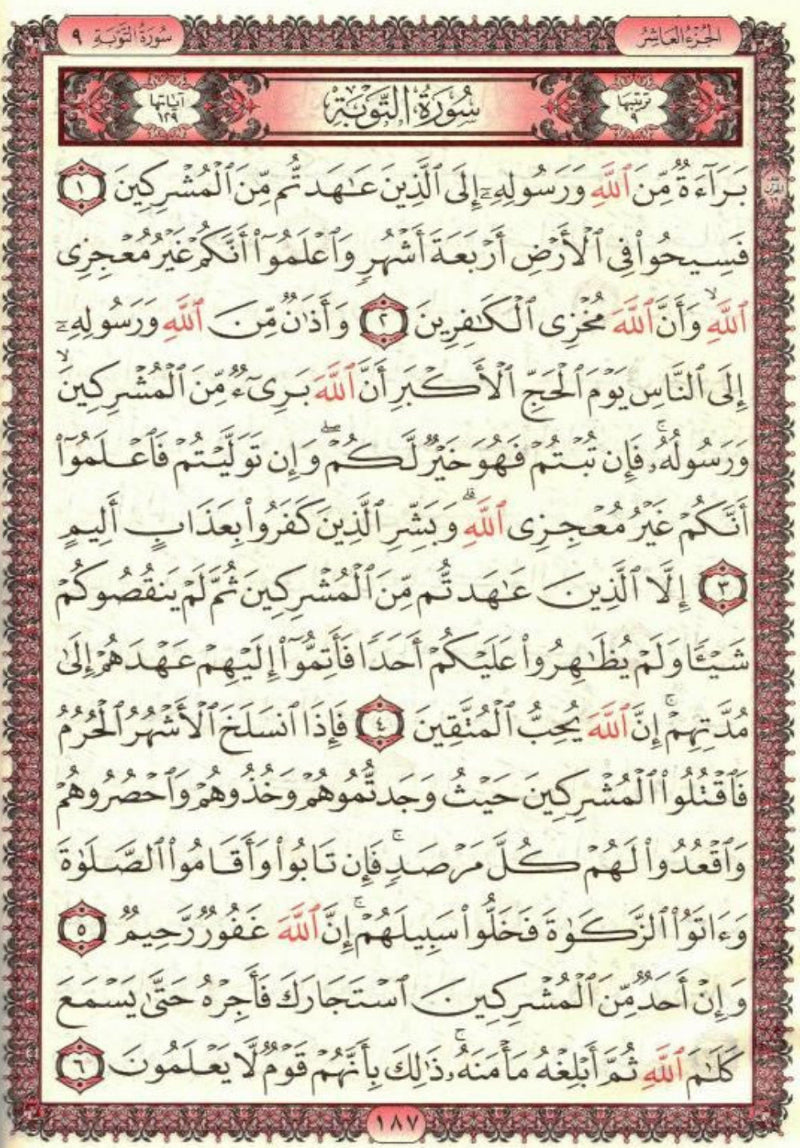 الجزء العاشر
سورة التوبة ٩
ترتيبها ٩
سُورَةُ التَّوْبَةِ
آياتها ١٢٩
بَرَآءَةٌ مِّنَ ٱللَّهِ وَرَسُولِهِۦٓ إِلَى ٱلَّذِينَ عَـٰهَدتُّم مِّنَ ٱلْمُشْرِكِينَ ١
فَسِيحُوا۟ فِى ٱلْأَرْضِ أَرْبَعَةَ أَشْهُرٍ وَٱعْلَمُوٓا۟ أَنَّكُمْ غَيْرُ مُعْجِزِى
ٱللَّهِ ۙ وَأَنَّ ٱللَّهَ مُخْزِى ٱلْكَـٰفِرِينَ ٢ وَأَذَٰنٌ مِّنَ ٱللَّهِ وَرَسُولِهِۦٓ
إِلَى ٱلنَّاسِ يَوْمَ ٱلْحَجِّ ٱلْأَكْبَرِ أَنَّ ٱللَّهَ بَرِىٓءٌ مِّنَ ٱلْمُشْرِكِينَ ۙ
وَرَسُولُهُۥ ۚ فَإِن تُبْتُمْ فَهُوَ خَيْرٌ لَّكُمْ ۖ وَإِن تَوَلَّيْتُمْ فَٱعْلَمُوٓا۟
أَنَّكُمْ غَيْرُ مُعْجِزِى ٱللَّهِ ۗ وَبَشِّرِ ٱلَّذِينَ كَفَرُوا۟ بِعَذَابٍ أَلِيمٍ
٣ إِلَّا ٱلَّذِينَ عَـٰهَدتُّم مِّنَ ٱلْمُشْرِكِينَ ثُمَّ لَمْ يَنقُصُوكُمْ
شَيْـًٔا وَلَمْ يُظَـٰهِرُوا۟ عَلَيْكُمْ أَحَدًا فَأَتِمُّوٓا۟ إِلَيْهِمْ عَهْدَهُمْ إِلَىٰ
مُدَّتِهِمْ ۚ إِنَّ ٱللَّهَ يُحِبُّ ٱلْمُتَّقِينَ ٤ فَإِذَا ٱنسَلَخَ ٱلْأَشْهُرُ ٱلْحُرُمُ
فَٱقْتُلُوا۟ ٱلْمُشْرِكِينَ حَيْثُ وَجَدتُّمُوهُمْ وَخُذُوهُمْ وَٱحْصُرُوهُمْ
وَٱقْعُدُوا۟ لَهُمْ كُلَّ مَرْصَدٍ ۚ فَإِن تَابُوا۟ وَأَقَامُوا۟ ٱلصَّلَوٰةَ
وَءَاتَوُا۟ ٱلزَّكَوٰةَ فَخَلُّوا۟ سَبِيلَهُمْ ۚ إِنَّ ٱللَّهَ غَفُورٌ رَّحِيمٌ ٥
وَإِنْ أَحَدٌ مِّنَ ٱلْمُشْرِكِينَ ٱسْتَجَارَكَ فَأَجِرْهُ حَتَّىٰ يَسْمَعَ
كَلَـٰمَ ٱللَّهِ ثُمَّ أَبْلِغْهُ مَأْمَنَهُۥ ۚ ذَٰلِكَ بِأَنَّهُمْ قَوْمٌ لَّا يَعْلَمُونَ ٦
١٨٧